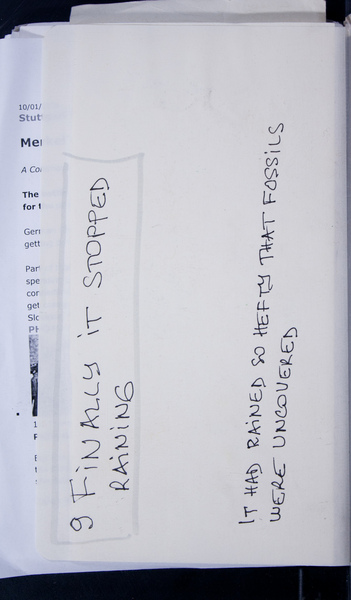 9 FINALLY IT STOPPED
RAINING
IT HAD RAINED SO HEFTY THAT FOSSILS
WERE UNCOVERED
10/01/
Stut
Me
A Co
The
for t
Gern
gett
Part
spe
cor
get
Slo
PH